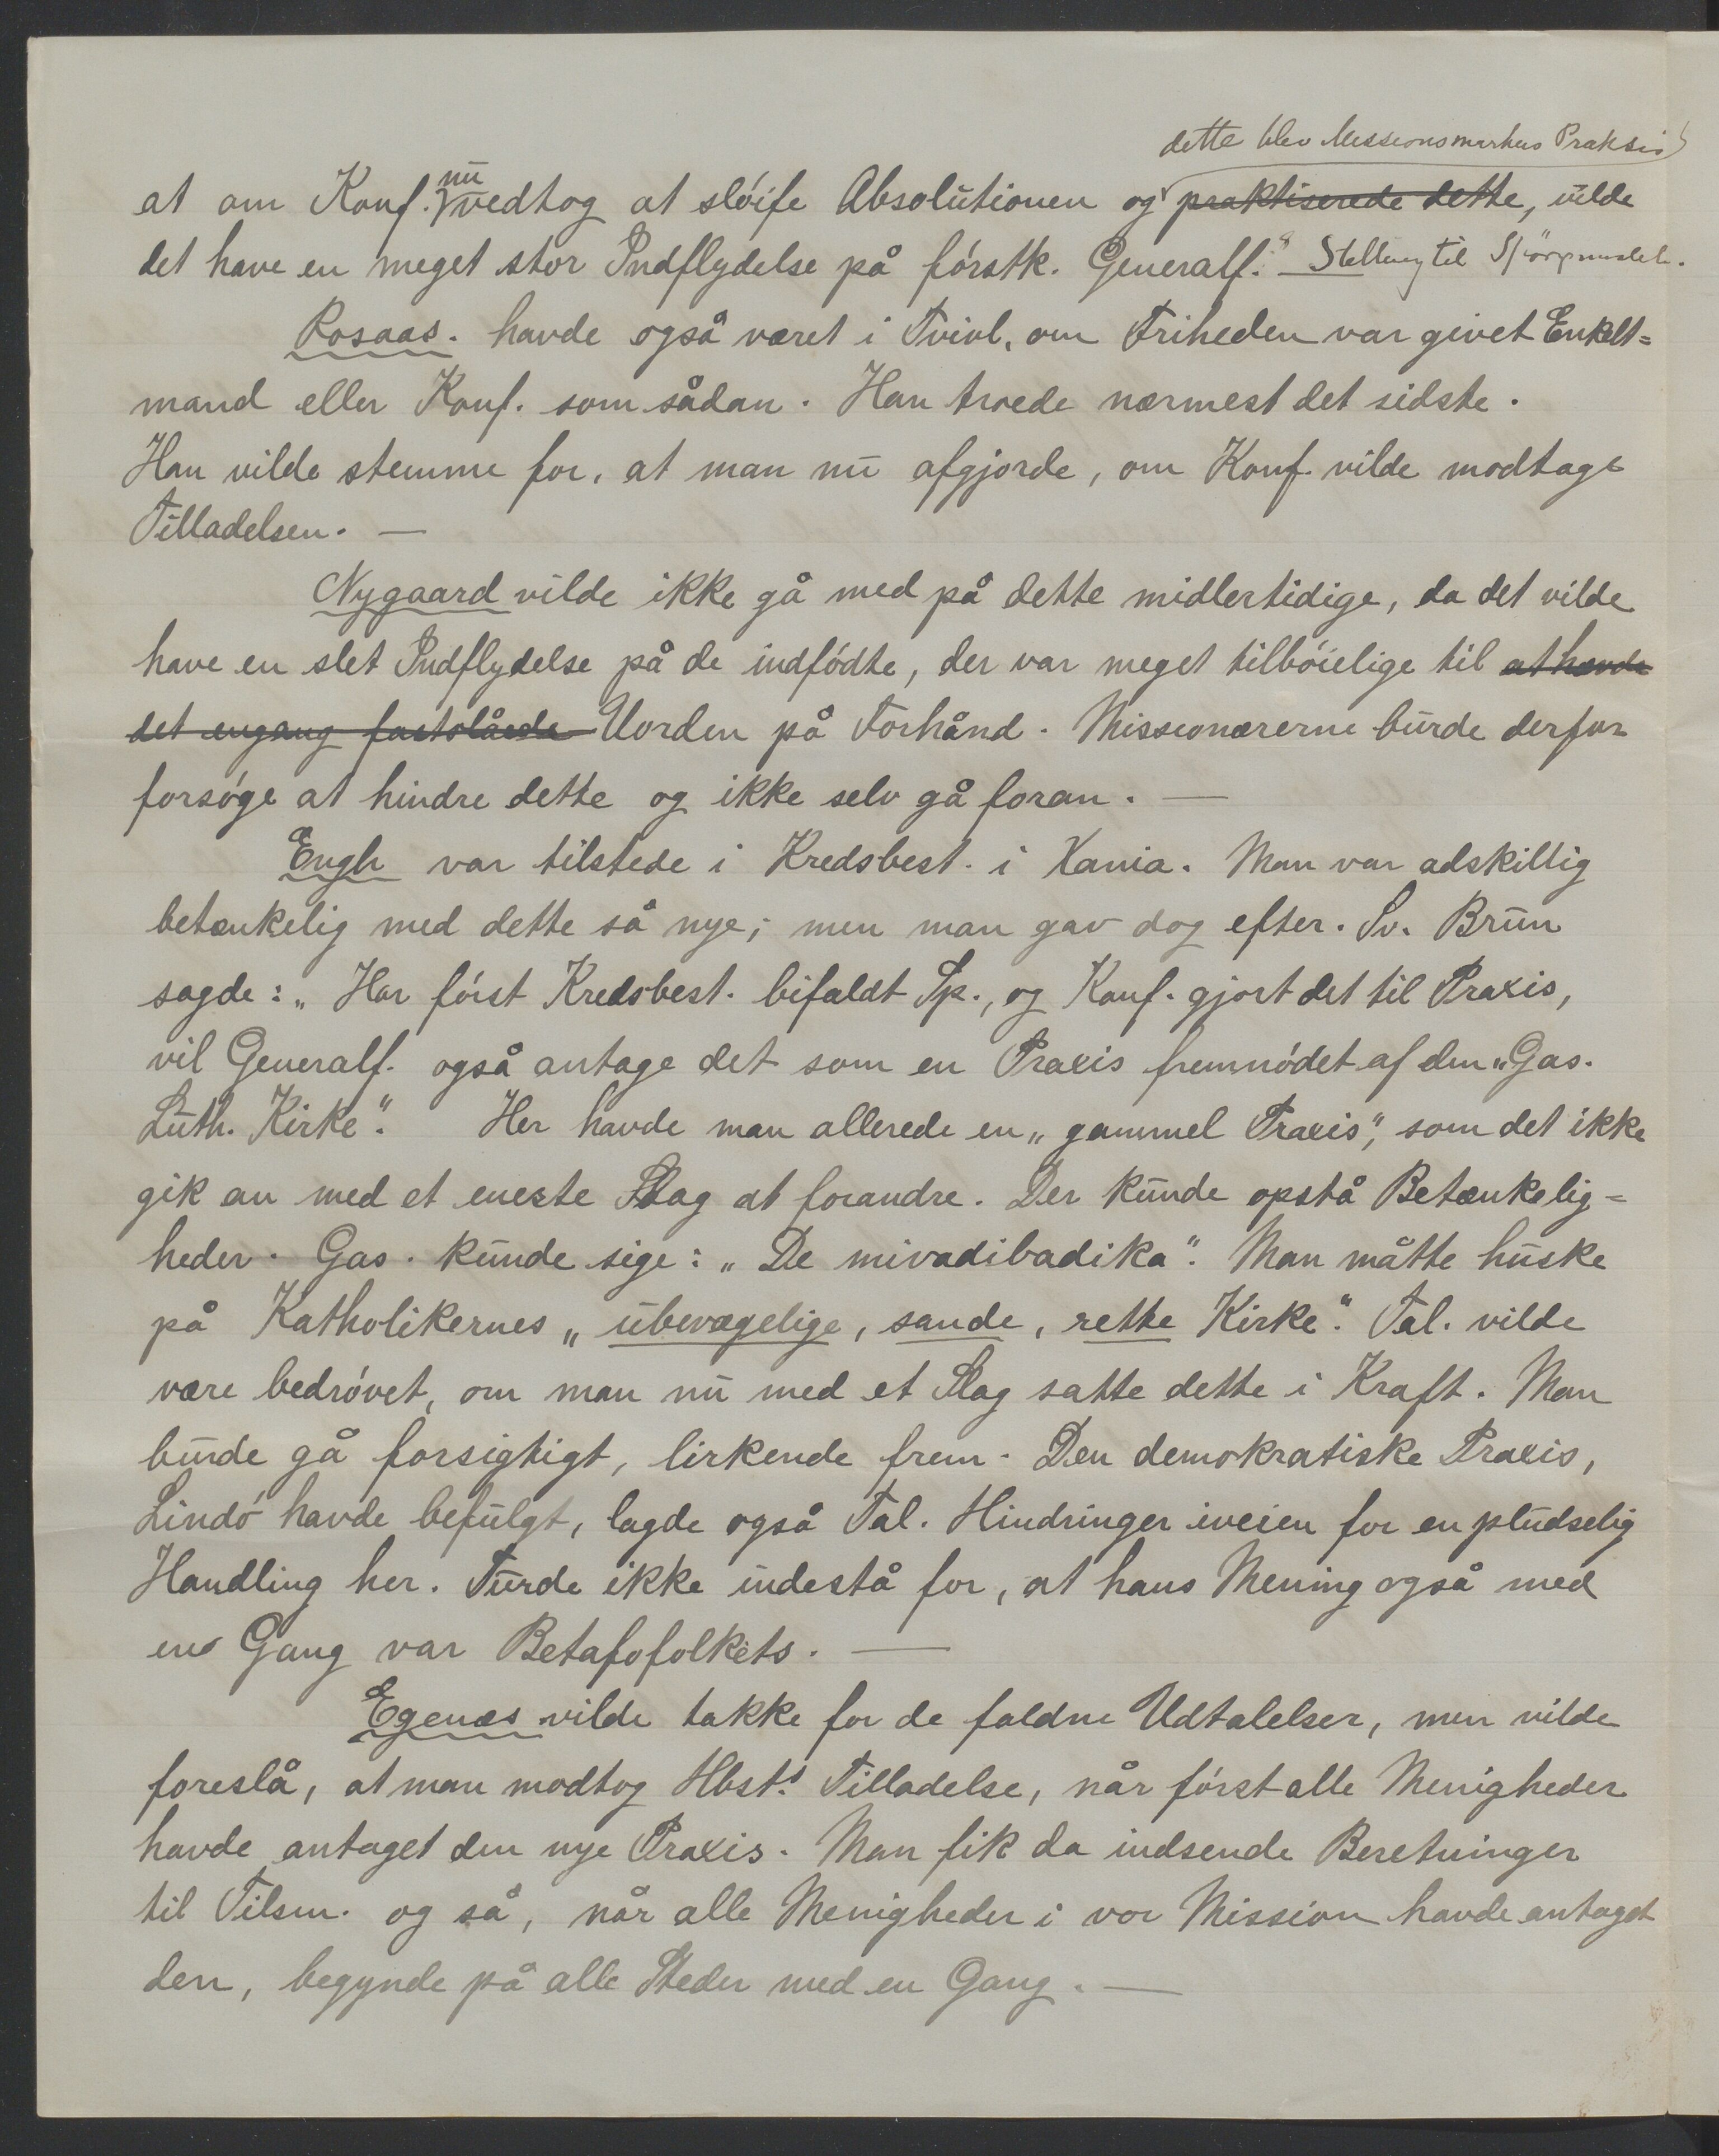 dette blev Missionsmarkens Praksis
at om Konf. nu vedtog at slöife Absolutionen og praktiserede dette, vilde
det have en meget stor Indflydelse på förstk. Generalf.s Stilling til Spörgsmålet.
Rosaas. havde også været i Tvivl, om Friheden var givet Enkelt=
mand eller Konf. som sådan. Han troede nærmest det sidste.
Han vilde stemme for, at man nu afgjorde, om Konf. vilde modtage
Tilladelsen. —
Nygaard vilde ikke gå med på dette midlertidige, da det vilde
have en slet Indflydelse på de indfödte, der var meget tilböielige til at hævde
det engang fastslåede Uorden på Forhånd. Missionærerne burde derfor
forsöge at hindre dette og ikke selv gå foran. —
Engh var tilstede i Kredsbest. i Xania. Man var adskillig
betænkelig med dette så nye; men man gav dog efter. Sv. Brun
sagde: „Har först Kredsbest. bifaldt Sp., og Konf. gjort det til Praxis,
vil Generalf. også antage det som en Praxis fremnödet af den „Gas.
Luth. Kirke“. Her havde man allerede en „gammel Praxis“, som det ikke
gik an med et eneste Slag at forandre. Der kunde opstå Betænkelig=
heder. Gas. kunde sige: „De mivadibadika“. Man måtte huske
på Katholikernes „ubevægelige, sande, rette Kirke“. Tal. vilde
være bedrövet, om man nu med et Slag satte dette i Kraft. Man
burde gå forsigtigt, lirkende frem. Den demokratiske Praxis,
Lindö havde befulgt, lagde også Tal. Hindringer iveien for en pludselig
Handling her. Turde ikke indestå for, at hans Mening også med
en Gang var Betafofolkets. —
Egenæs vilde takke for de faldne Udtalelser, men vilde
foreslå, at man modtog Hbst.s Tilladelse, når först alle Menigheder
havde antaget den nye Praxis. Man fik da indsende Beretninger
til Tilsm. og så, når alle Menigheder i vor Mission havde antaget
den, begynde på alle Steder med en Gang. —